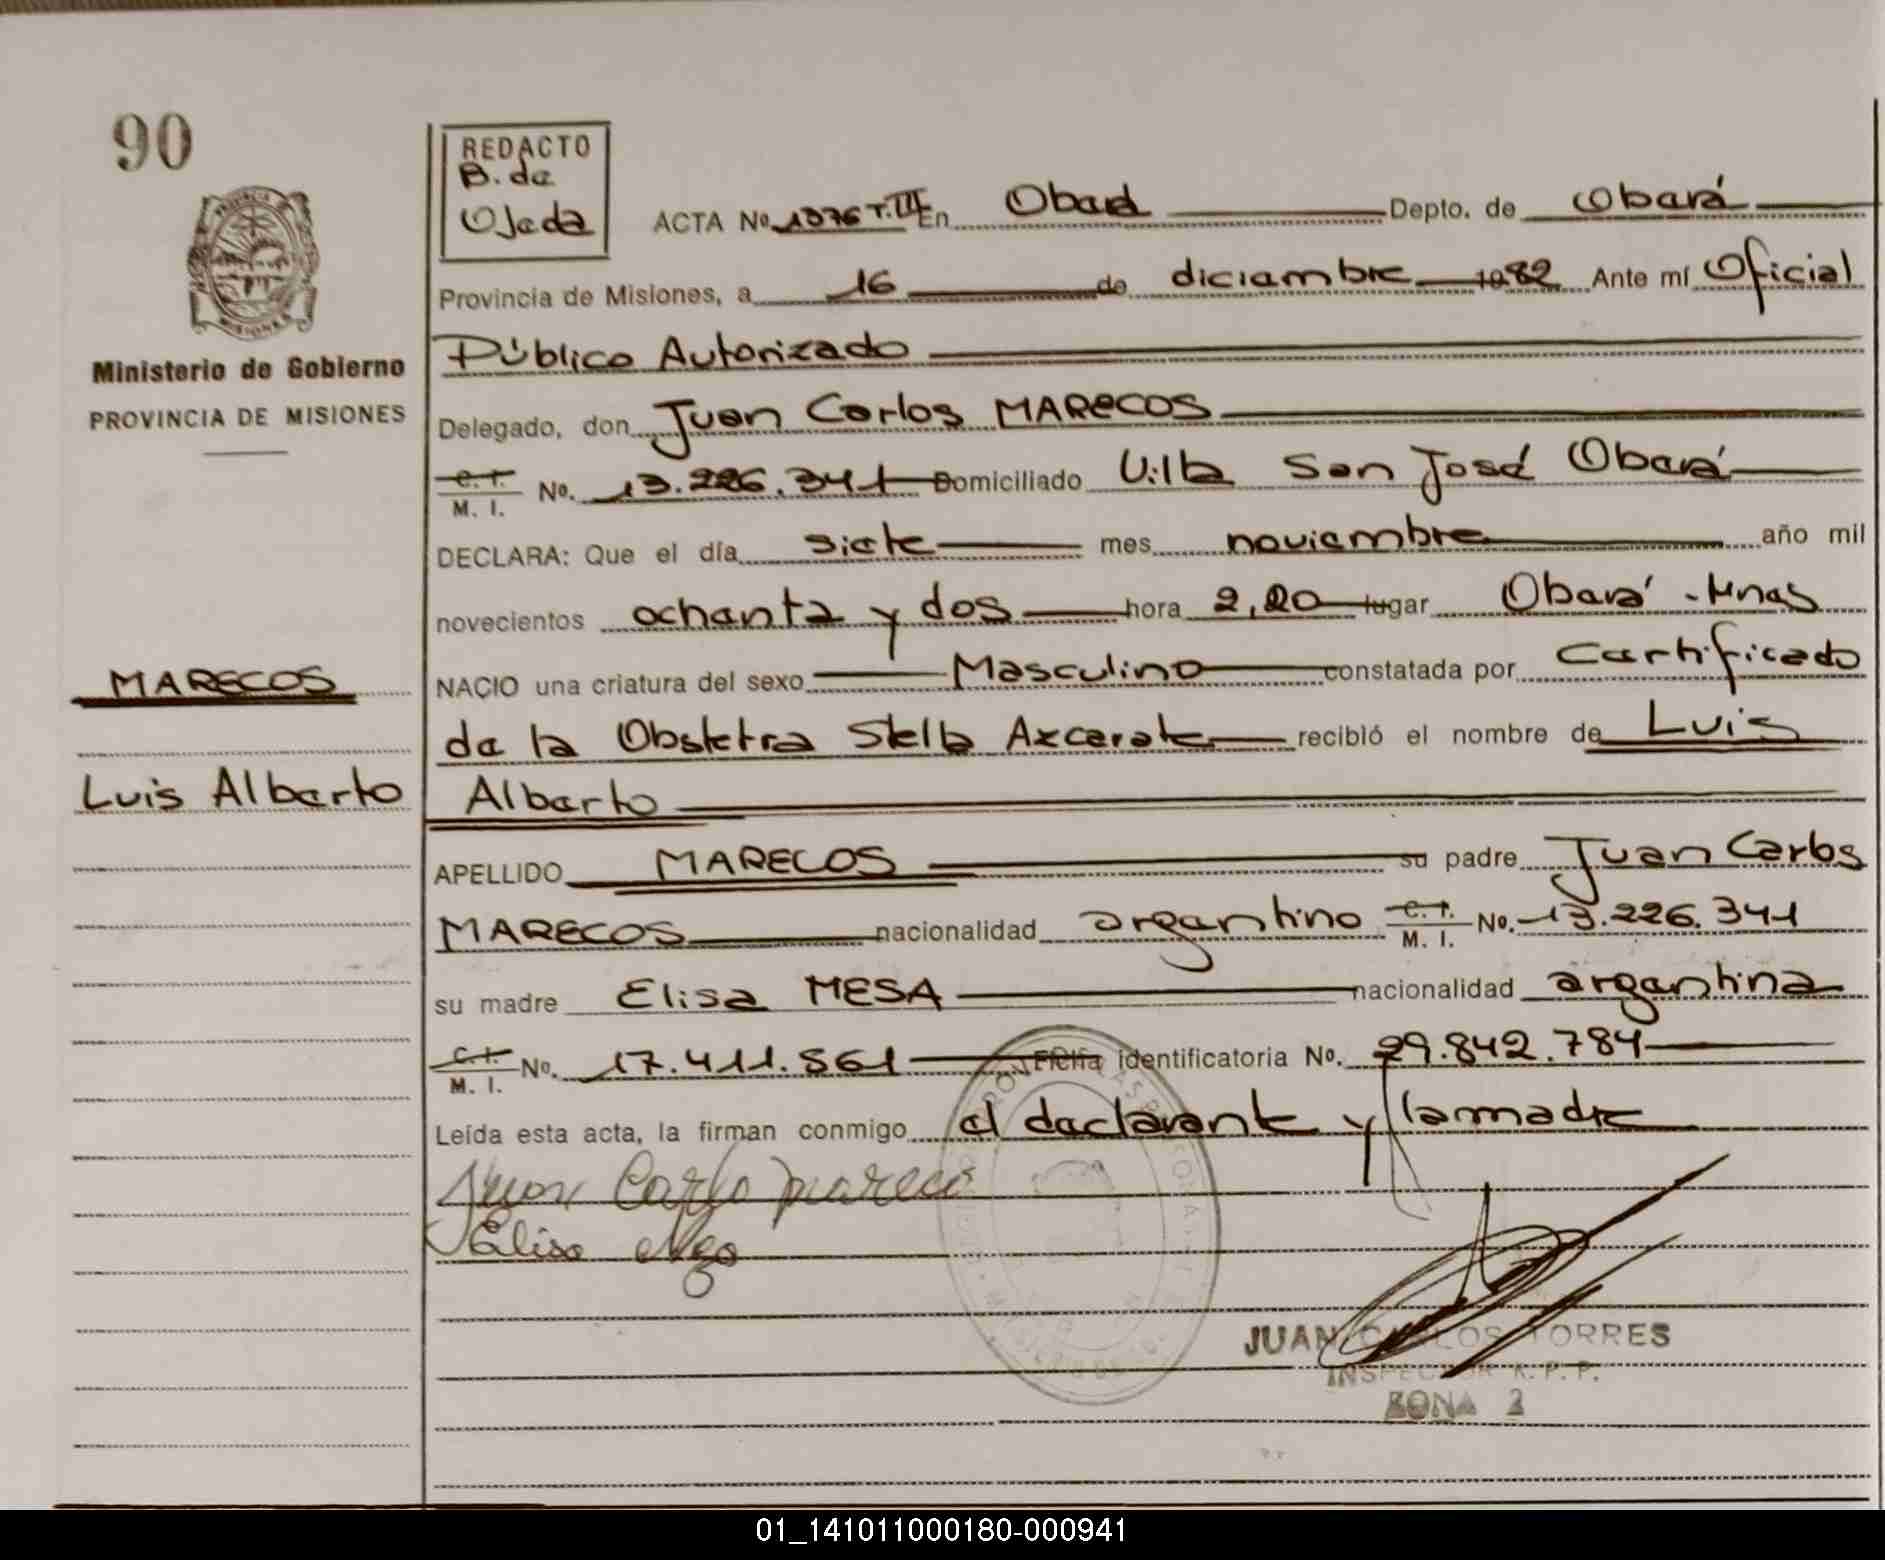 90
REDACTO
B. de
Ojeda
ACTA No. 1376 T. III En Oberá Depto. de Oberá
Provincia de Misiones, a 16 de diciembre 1982 Ante mí Oficial
Público Autorizado
Ministerio de Gobierno
PROVINCIA DE MISIONES
Delegado, don Juan Carlos MARECOS
C. I. / M. I. No. 13.226.341 Domiciliado Villa San José Oberá
DECLARA: Que el día siete mes noviembre año mil
novecientos ochenta y dos hora 2,20 lugar Oberá - Mnes
MARECOS
NACIO una criatura del sexo Masculino constatada por Certificado
de la Obstetra Stella Azcarate recibió el nombre de Luis
Luis Alberto
Alberto
APELLIDO MARECOS su padre Juan Carlos
MARECOS nacionalidad argentino C. I. / M. I. No. 13.226.341
su madre Elisa MESA nacionalidad argentina
C. I. / M. I. No. 17.411.561 Ficha identificatoria No. 29.842.784
Leída esta acta, la firman conmigo el declarante y la madre
Juan Carlo mareco
Elisa
JUAN CARLOS TORRES
INSPECTOR R. P. P.
ZONA 2
01_141011000180-000941